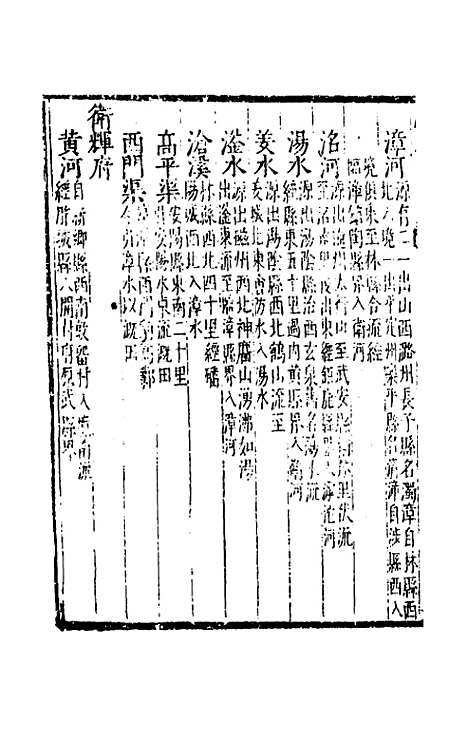 漳河
源有二一出山西潞州長子縣名濁漳自林縣西
北入境一出平定州樂平縣名清漳自涉縣西入
境俱東至林縣合流經
臨漳館陶縣界入衛河
洺河
源出遼州太行山至武安縣
湯水
源出湯陰縣治西玄泉舊名湯水流
經縣東五十里過內黃縣界入衛河
姜水
源出湯陰縣西北鶴山流至
羑城北東會防水入湯水
滏水
源出磁州西北神麕山湧沸如湯
出滏東流至臨漳縣界入漳河
滄溪
林縣西北四十里經磻
陽城西北入漳水
高平渠
安陽縣東南二十里
引安陽水東流溉田
西門渠
西門豹
漳水以溉田
衛輝府
黃河
自新鄉縣西南敦留村入境南流
經胙城縣入開封府原武縣界